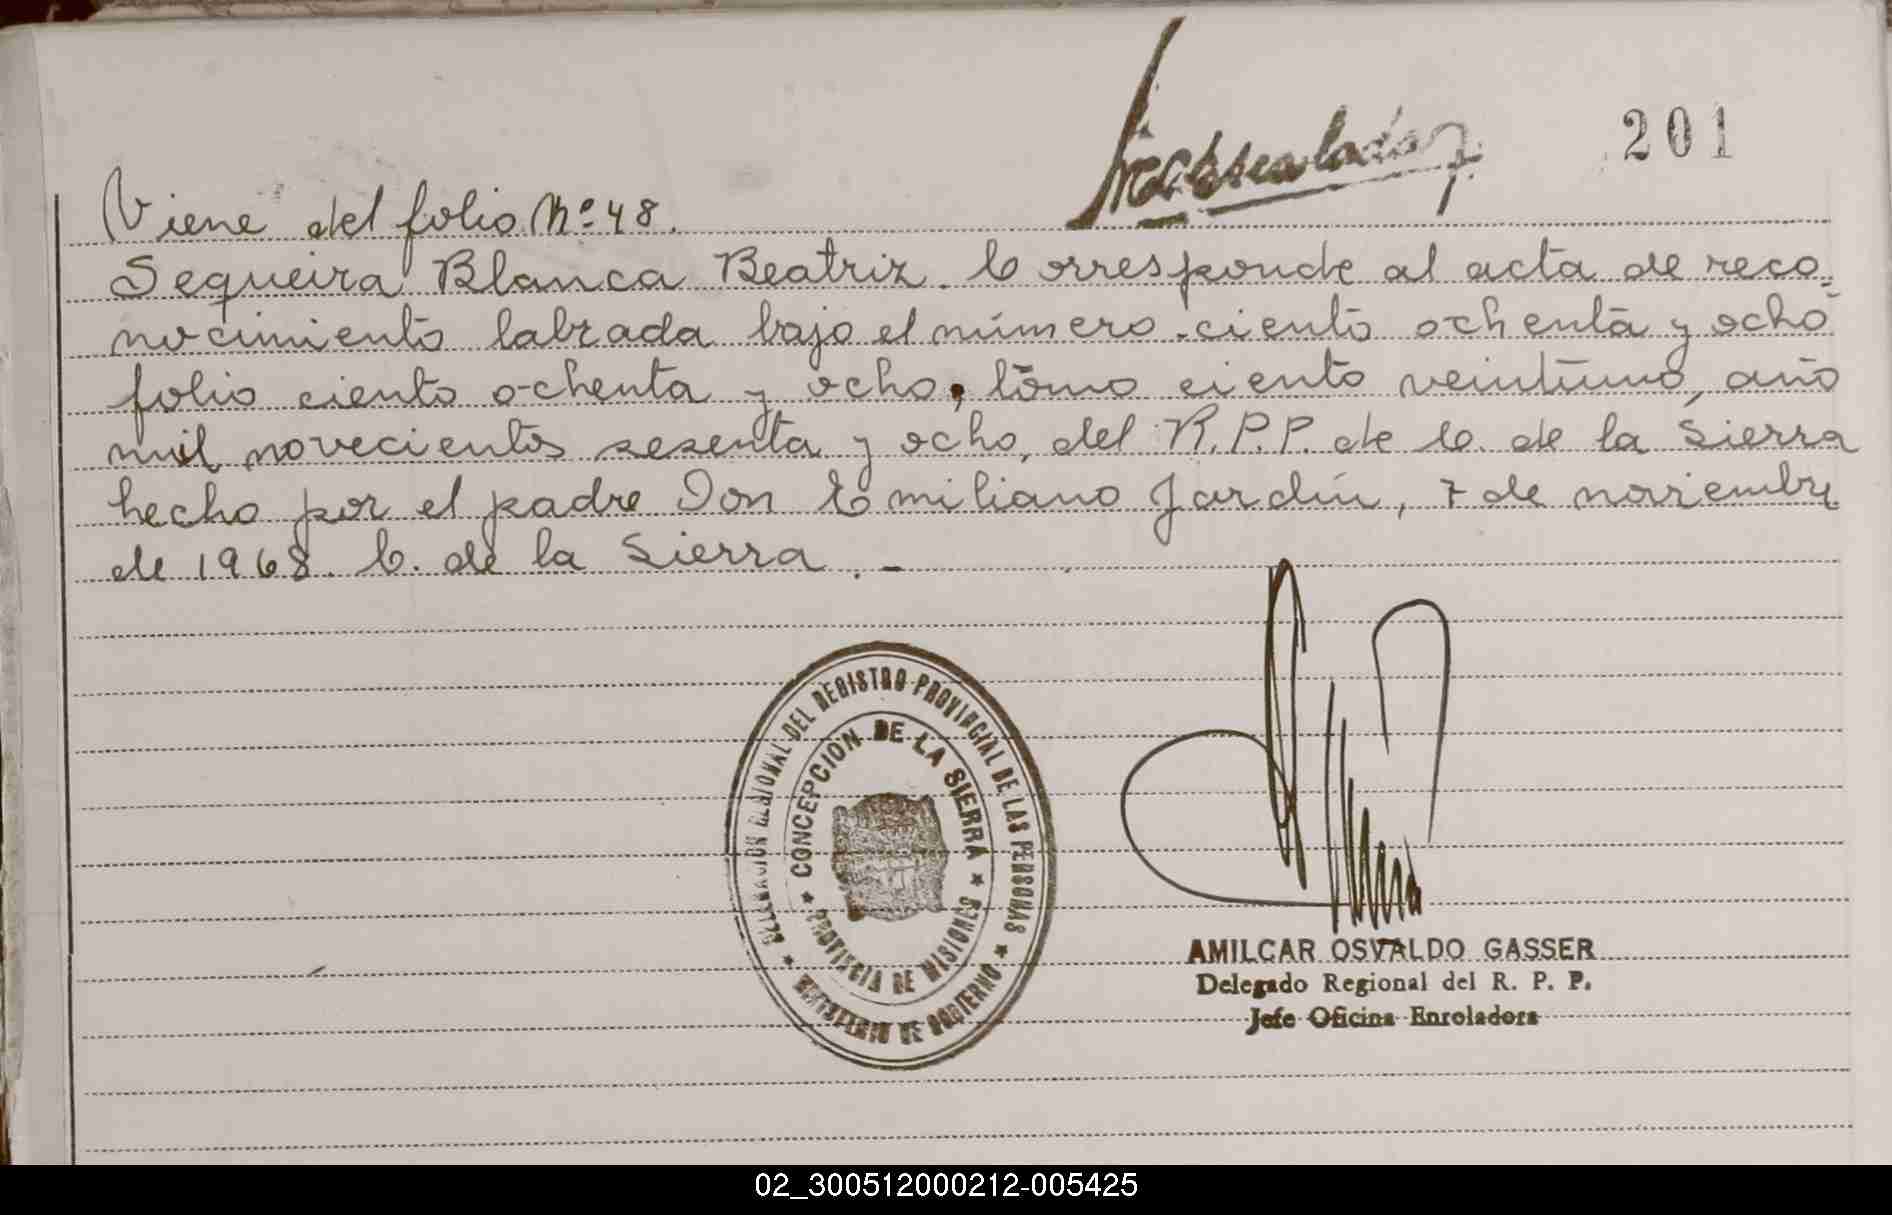 201
Viene del folio Nº 48.
Sequeira Blanca Beatriz. Corresponde al acta de reco-
nocimiento labrada bajo el número ciento ochenta y ocho
folio ciento ochenta y ocho, tomo ciento veintiuno, año
mil novecientos sesenta y ocho, del R.P.P. de C. de la Sierra
hecho por el padre Don Emiliano Jardín, 7 de noviembre
de 1968. C. de la Sierra.-
DELEGACION REGIONAL DEL REGISTRO PROVINCIAL DE LAS PERSONAS
★ MINISTERIO DE GOBIERNO ★
CONCEPCION DE LA SIERRA
★ PROVINCIA DE MISIONES ★
AMILCAR OSVALDO GASSER
Delegado Regional del R. P. P.
Jefe Oficina Enroladora
02_300512000212-005425